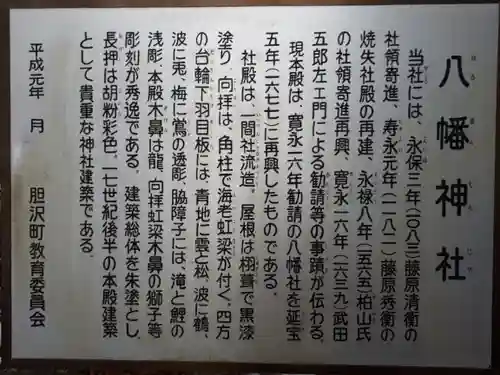 八幡神社
当社には、永保三年(一〇八三)藤原清衡の
社領寄進、寿永元年(一一八二)藤原秀衡の
焼失社殿の再建、永禄八年(一五六五)柏山氏
の社領寄進再興、寛永一六年(一六三九)武田
五郎左エ門による勧請等の事蹟が伝わる。
現本殿は、寛永一六年勧請の八幡社を延宝
五年(一六七七)に再興したものである。
社殿は、一間社流造。屋根は栩葺で黒漆
塗り、向拝は、角柱で海老虹梁が付く。四方
の台輪下羽目板には、青地に雲と松、波に鶴、
波に兎、梅に鴬の透彫、脇障子には、滝と鯉の
浅彫、本殿木鼻は龍、向拝虹梁木鼻の獅子等
彫刻が秀逸である。建築総体を朱塗とし、
長押は胡粉彩色。一七世紀後半の本殿建築
として貴重な神社建築である。
平成元年 月
胆沢町教育委員会